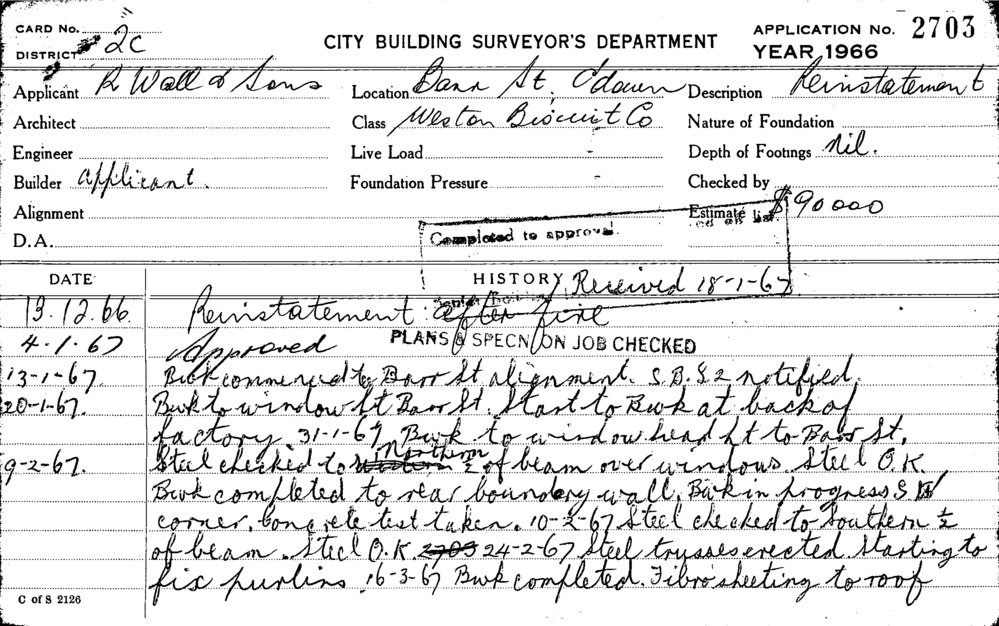 CARD No.
DISTRICT 2c
CITY BUILDING SURVEYOR'S DEPARTMENT
APPLICATION No. 2703
YEAR 1966
Applicant R Wall & Sons
Location Barr St,
Description Reinstatement
Architect
Class Weston Biscuit Co
Nature of Foundation
Engineer
Live Load -
Depth of Footings Nil.
Builder applicant.
Foundation Pressure -
Checked by
Alignment
Estimate $90000
D.A.
Completed to approval.
DATE
HISTORY Received 18-1-67
19.12.66. Reinstatement after fire
4-1-67 Approved PLANS & SPECN ON JOB CHECKED
13-1-67. Bwk commenced to Barr St alignment. S.B.S 2 notified.
20-1-67. Bwk to window ht Barr St. Start to Bwk at back of
factory. 31-1-67 Bwk to window head ht to Barr St.
9-2-67. Steel checked to Northern ½ of beam over windows. Steel O.K.
Bwk completed to rear boundary wall. Bwk in progress S W
corner. Concrete test taken. 10-2-67 Steel checked to Southern ½
of beam. Steel O.K. 2703 24-2-67 Steel trusses erected. Starting to
fix purlins. 16-3-67 Bwk completed. Fibro sheeting to roof
C of S 2126